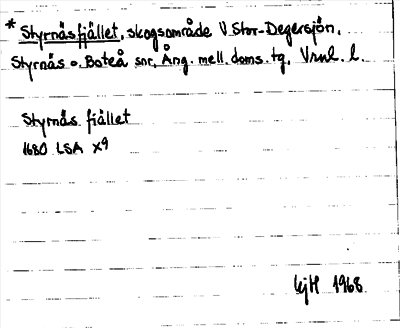 * Styrnäsfjället, skogsområde V Stor-Degersjön,
Styrnäs o. Boteå snr, Ång. mell. doms. tg, Vrnl. l.
Styrnäs fiället
1680 LSA X9
LejH 1968